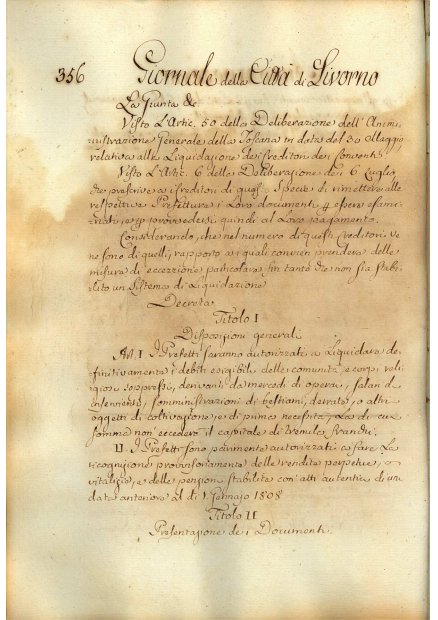 356 Giornale della Città di Livorno
La Giunta &c
Visto L'Artic. 50 della Deliberazione dell'Ammi-
nistrazione Generale della Toscana in data del 30 Maggio
relativa alla Liquidazione dei Creditori dei Conventi
Visto L'Artic. 6 della Deliberazione de i 6 Luglio
che prescrive a i Creditori di questa Specie di rimettere alle
respettive Prefetture i Loro documenti p essere esami-
nati, e p provvedersi quindi al Loro pagamento.
Considerando, che nel numero di questi Creditori ve
ne sono di quelli, rapporto a i quali convien prendere delle
misure di eccezzione particolare, fin tanto che non sia stabi-
lito un Sistema di Liquidazione
Decreta
Titolo I
Disposizioni generali
Art. I I Prefetti saranno autorizzati a Liquidare de-
finitivamente i debiti esigibili delle comunità, e corpi reli-
giosi soppressi, derivanti da mercedi di operai, salari d
somministrazioni di bestiami, derrate, o altri
oggetti di coltivazione, e di prima necessità, La di cui
somma non eccederà il capitale di tremila franchi.
II. I Prefetti sono parimente autorizzati a fare La
ricognizione provvisoriamente delle rendite perpetue, o
vitalizie, e delle pensioni stabilite con atti autentici di una
data anteriore al dì 1. Gennaio 1808
Titolo II
Presentazione de i Documenti.